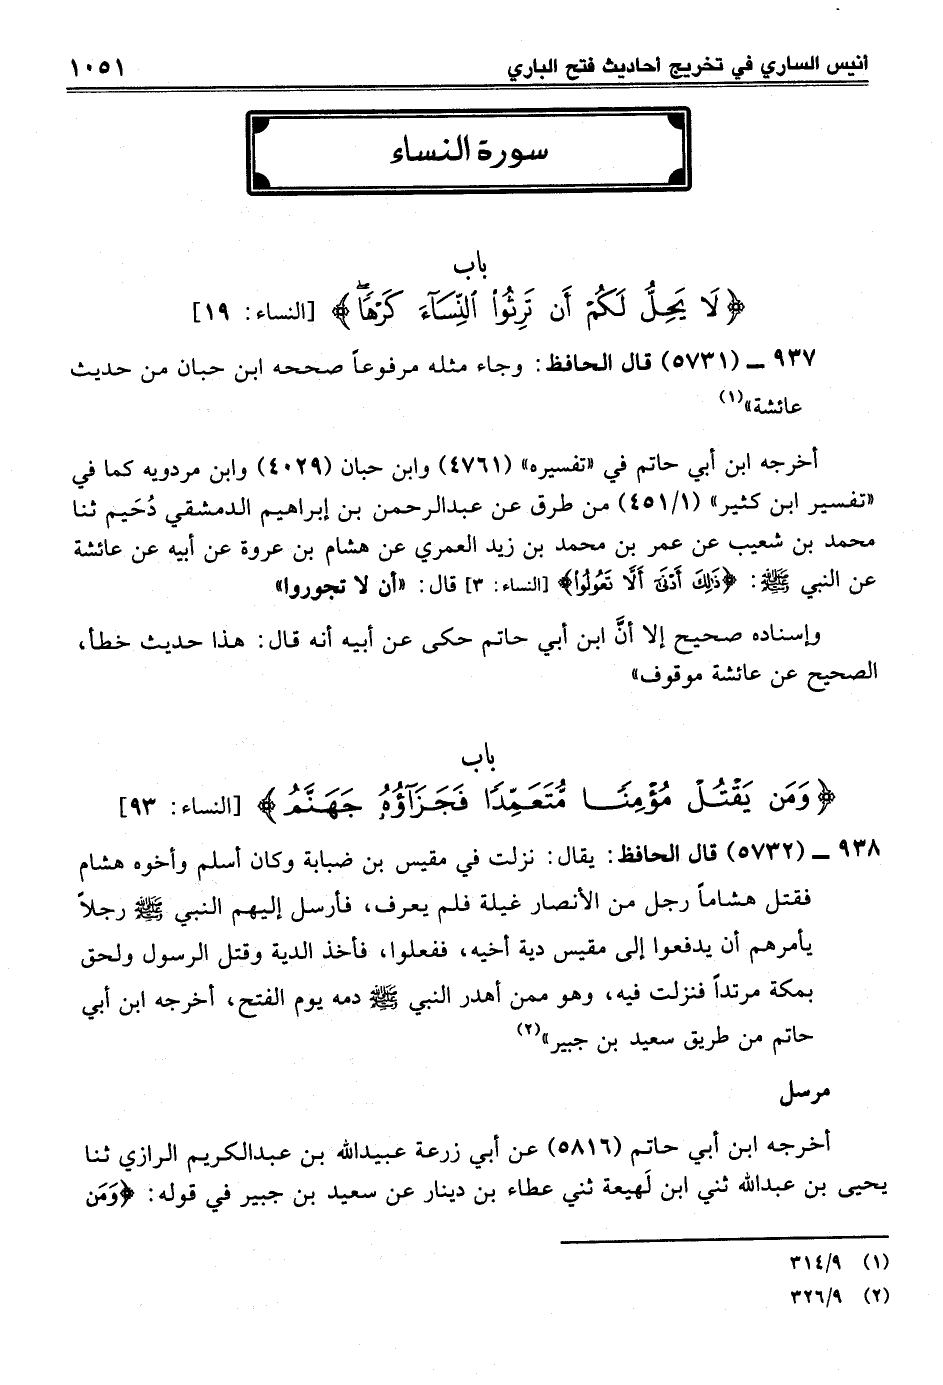 أنيس الساري في تخريج أحاديث فتح الباري ١٠٥١
سورة النساء
باب
﴿لَا يَحِلُّ لَكُمْ أَن تَرِثُوا۟ ٱلنِّسَآءَ كَرْهًاۖ﴾ [النساء: ١٩]
٩٣٧ ـ (٥٧٣١) قال الحافظ: وجاء مثله مرفوعاً صححه ابن حبان من حديث
عائشة»(١)
أخرجه ابن أبي حاتم في «تفسيره» (٤٧٦١) وابن حبان (٤٠٢٩) وابن مردويه كما في
«تفسير ابن كثير» (٤٥١/١) من طرق عن عبدالرحمن بن إبراهيم الدمشقي دُحَيم ثنا
محمد بن شعيب عن عمر بن محمد بن زيد العمري عن هشام بن عروة عن أبيه عن عائشة
عن النبي ﷺ: ﴿ذَٰلِكَ أَدْنَىٰٓ أَلَّا تَعُولُوا۟﴾ [النساء: ٣] قال: «أن لا تجوروا»
وإسناده صحيح إلا أنَّ ابن أبي حاتم حكى عن أبيه أنه قال: هذا حديث خطأ،
الصحيح عن عائشة موقوف»
باب
﴿وَمَن يَقْتُلْ مُؤْمِنًا مُّتَعَمِّدًا فَجَزَآؤُهُۥ جَهَنَّمُ﴾ [النساء: ٩٣]
٩٣٨ ـ (٥٧٣٢) قال الحافظ: يقال: نزلت في مقيس بن ضبابة وكان أسلم وأخوه هشام
فقتل هشاماً رجل من الأنصار غيلة فلم يعرف، فأرسل إليهم النبي ﷺ رجلاً
يأمرهم أن يدفعوا إلى مقيس دية أخيه، ففعلوا، فأخذ الدية وقتل الرسول ولحق
بمكة مرتداً فنزلت فيه، وهو ممن أهدر النبي ﷺ دمه يوم الفتح، أخرجه ابن أبي
حاتم من طريق سعيد بن جبير»(٢)
مرسل
أخرجه ابن أبي حاتم (٥٨١٦) عن أبي زرعة عبيدالله بن عبدالكريم الرازي ثنا
يحيى بن عبدالله ثني ابن لَهيعة ثني عطاء بن دينار عن سعيد بن جبير في قوله: ﴿وَمَن
(١) ٣١٤/٩
(٢) ٣٢٦/٩